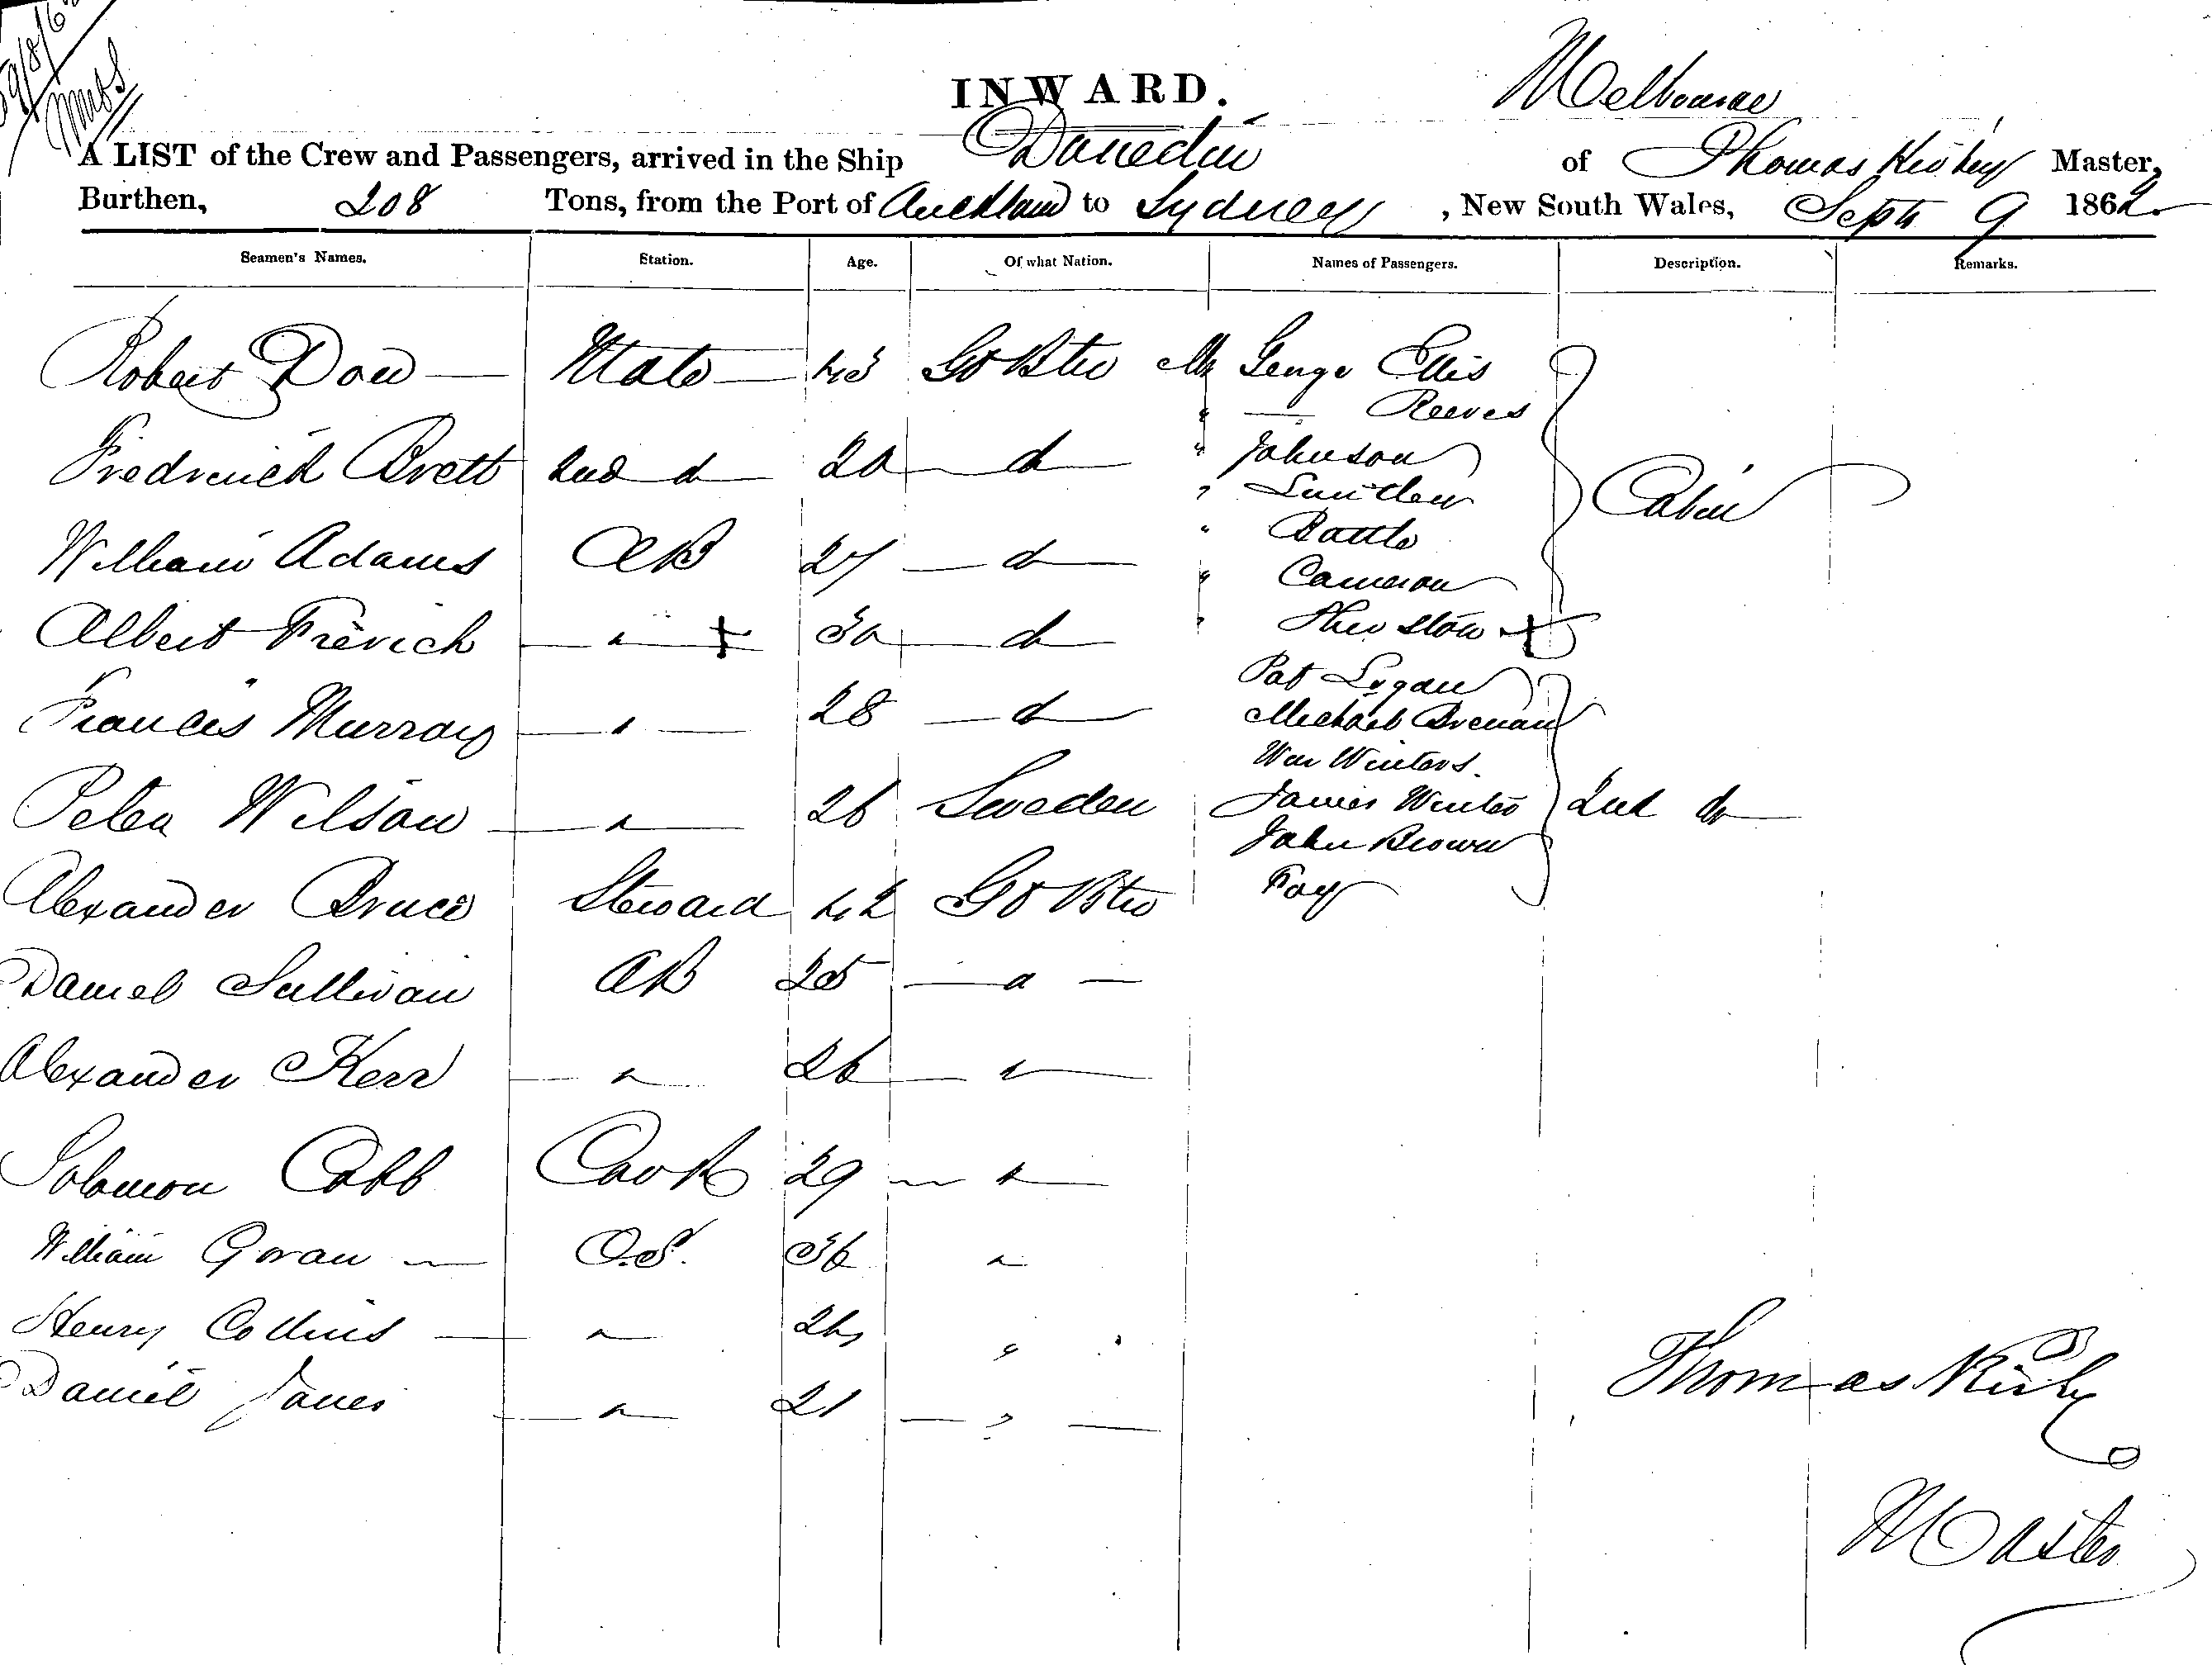 INWARD.
Melbourne
A LIST of the Crew and Passengers, arrived in the Ship Dunedin of Thomas Kirby Master,
Burthen, 208 Tons, from the Port of Auckland to Sydney, New South Wales, Septr 9 1862.
Seamen's Names. Station. Age. Of what Nation. Names of Passengers. Description. Remarks.
Robert Dow Mate 43 Gt Btn Mr George Ellis
" — Reeves
Fredrick Brett 2nd do 20 do " Johnson
Cabin
William Adams AB 27 do " Battle
" Cameron
Albert French " 30 do "
Pat Logan
Francis Murray " 28 do Michael Brenan
Wm Winters.
Peter Wilson " 26 Sweden James Winter 2nd do
John Brown
Alexander Bruce Steward 42 Gt Btn Foy
Daniel Sullivan AB 25 "
Alexander Kerr " 26 "
Solomon Cobb Cook 29 "
William Goran O.S. 36 "
Henry Collins " 24 "
Daniel Jones " 21 "
Thomas Kirby
Master